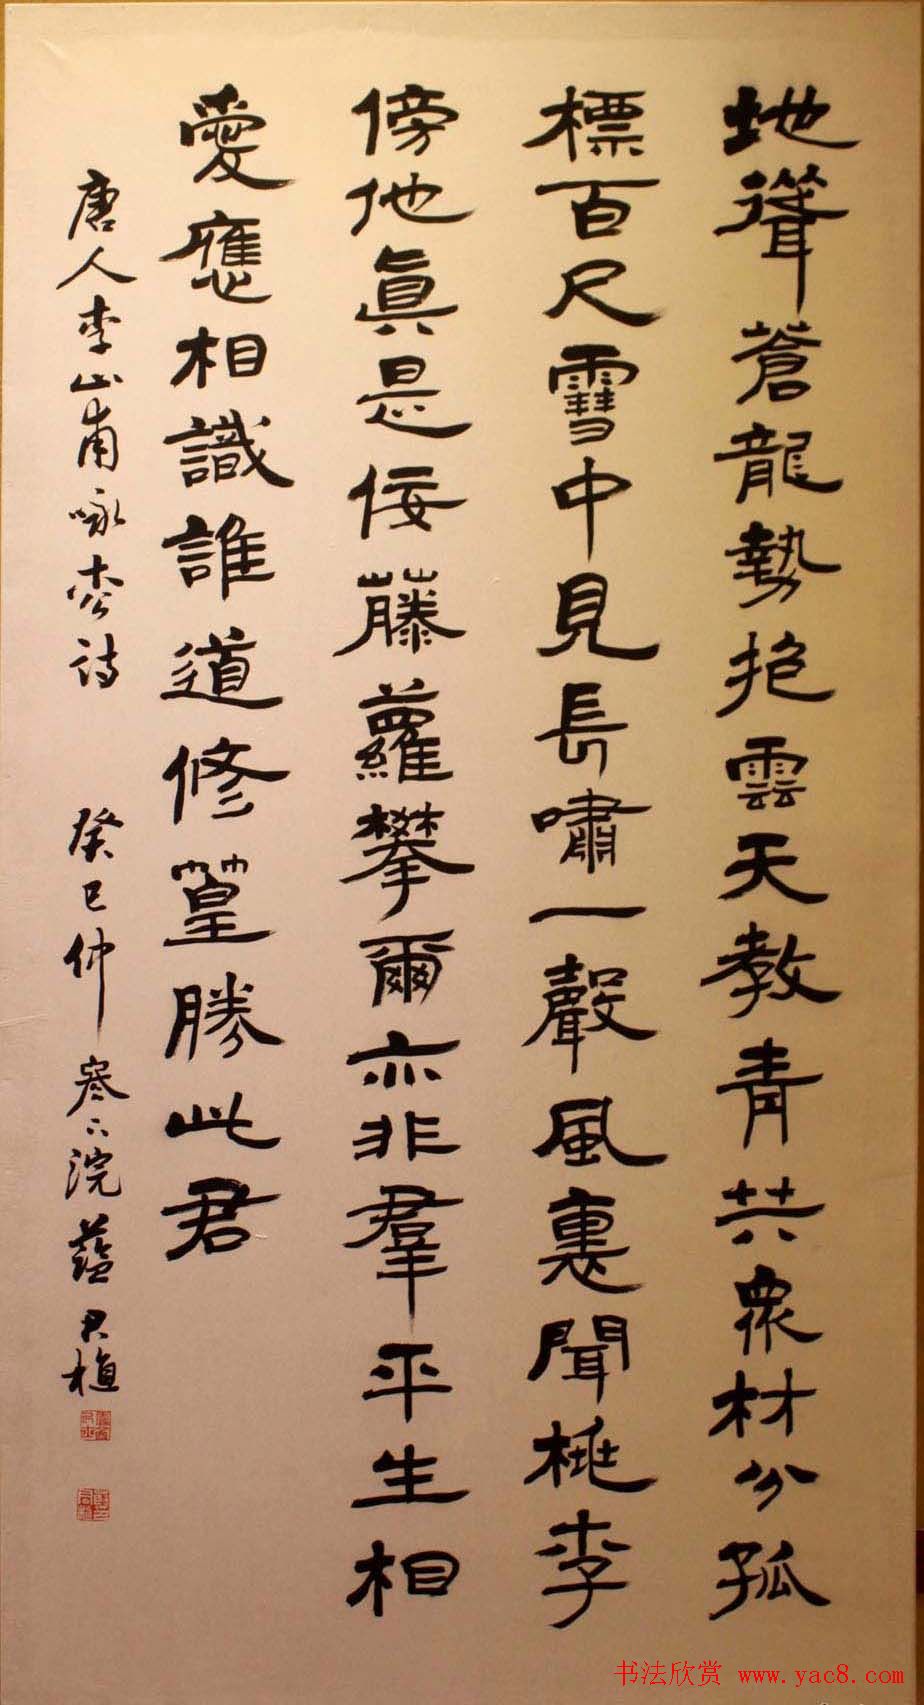 地聳蒼龍勢抱雲天教青共眾材分孤
標百尺雪中見長嘯一聲風裏聞桃李
傍他眞是佞藤蘿攀爾亦非羣平生相
愛應相識誰道修篁勝此君
唐人李山甫咏松詩 癸巳仲寒下浣 君植
书法欣赏 www.yac8.com